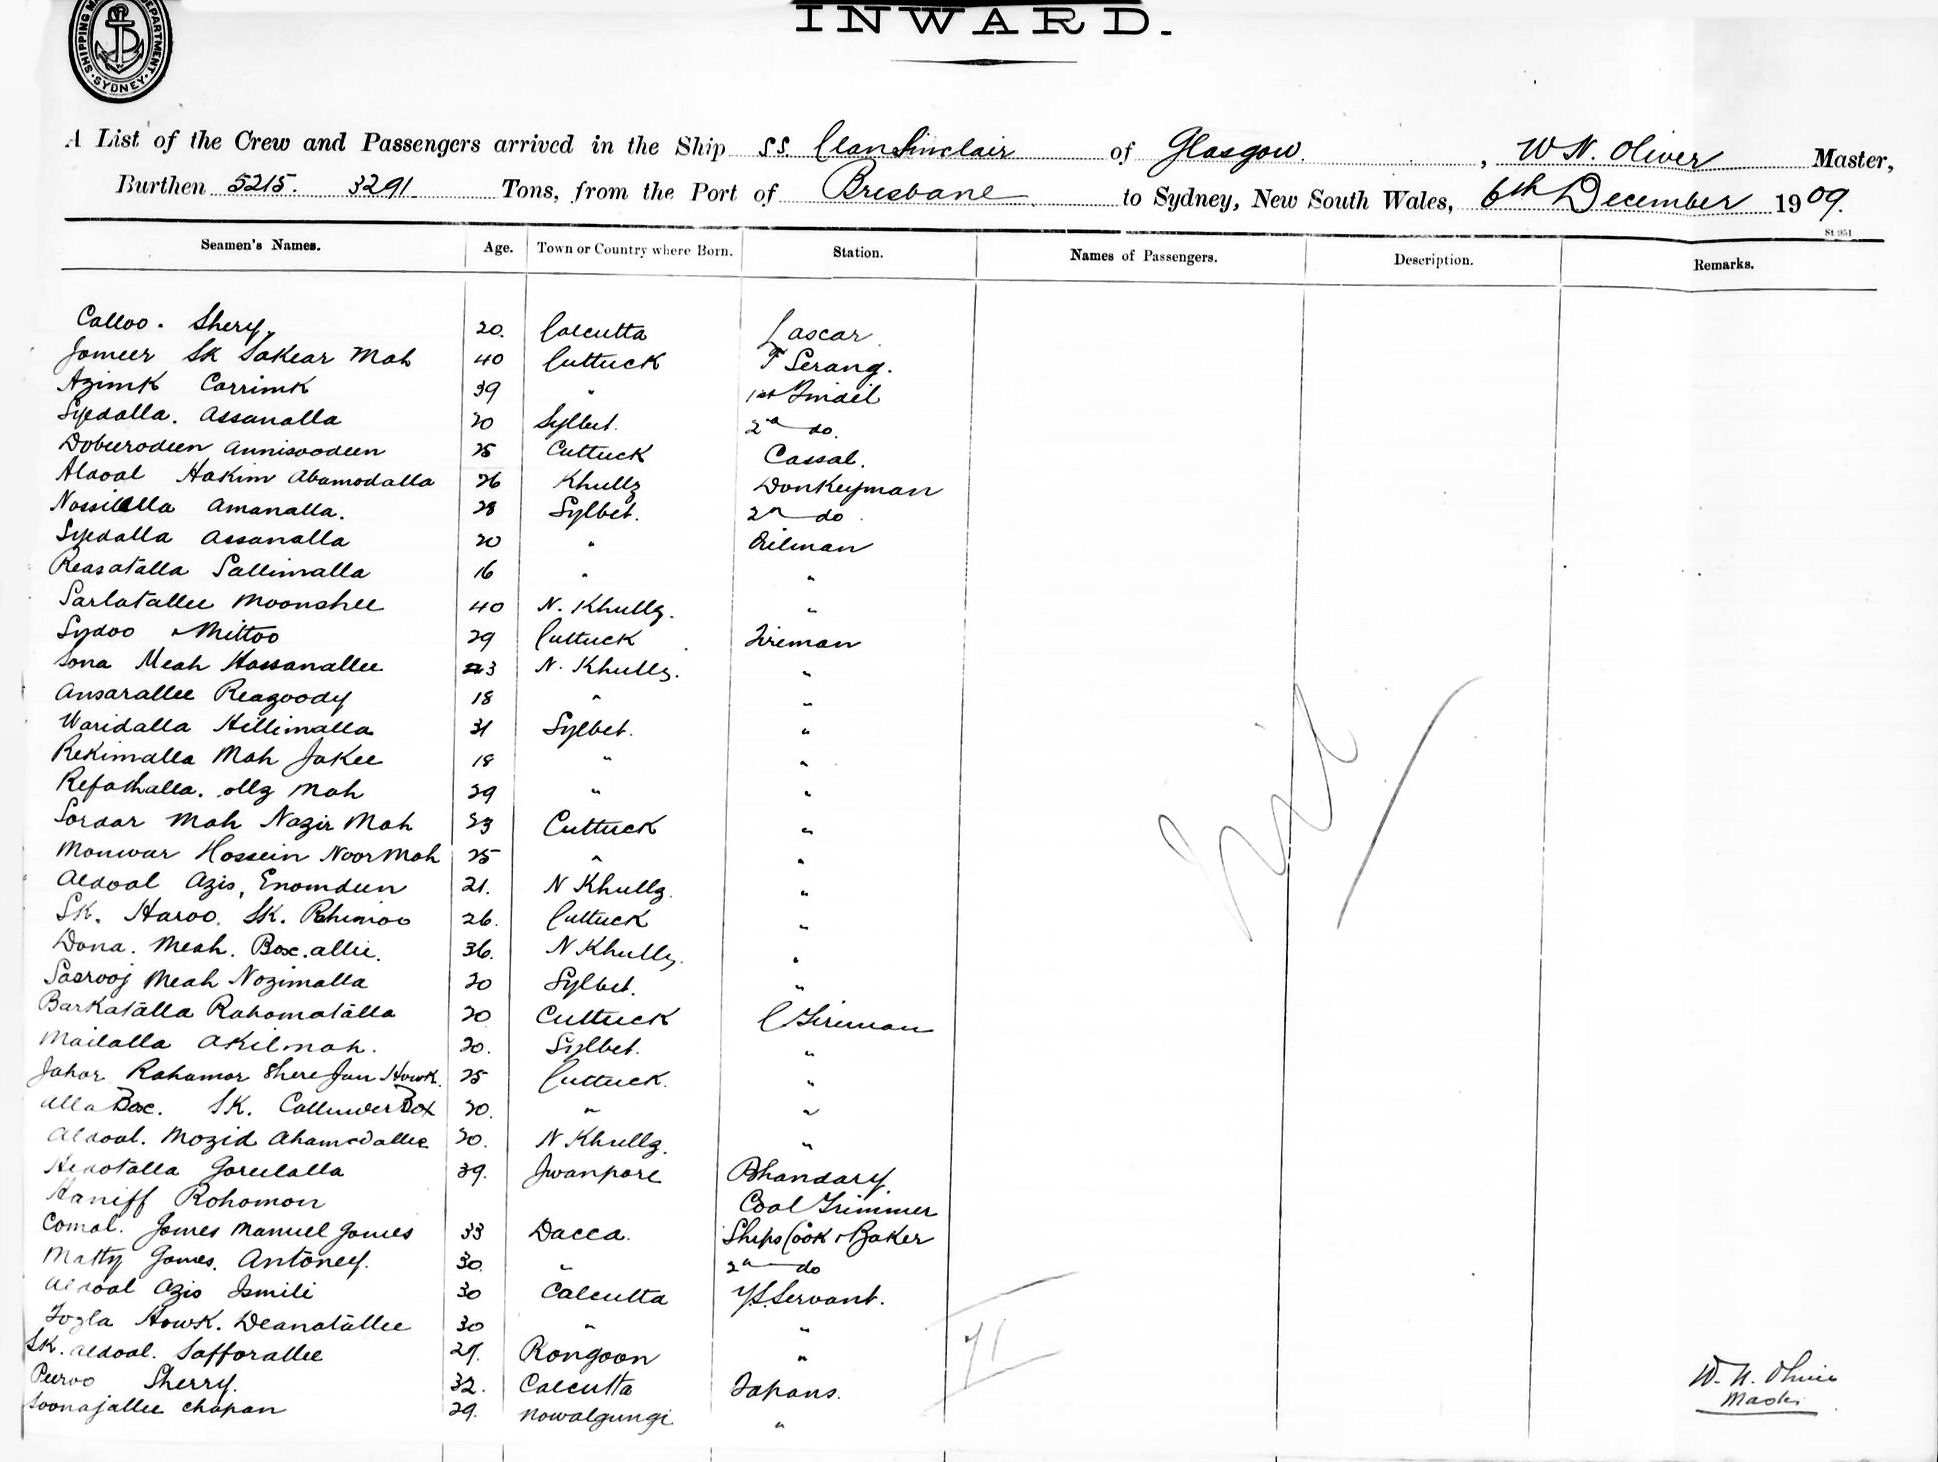 SHIPPING MA DEPARTMENT SYDNEY
INWARD.
A List of the Crew and Passengers arrived in the Ship SS. Clan Sinclair of Glasgow, W N. Oliver Master,
Burthen 5215. 3291 Tons, from the Port of Brisbane to Sydney, New South Wales, 6th December 1909.
St 951
Seamen's Names. Age. Town or Country where Born. Station. Names of Passengers. Description. Remarks.
Calloo. Shery. 20. Calcutta Lascar.
Jomeer Sk Sakear Moh 40 Cuttuck F Serang.
Azimk Carrimk 39 " 1st Tindil
Syedalla. Assanalla 20 Sylhet. 2nd do.
Dobeerodeen Annisoodeen 25 Cuttuck Cassab.
Abdool Hakim Abamodalla 26 Khully Donkeyman
Nossilalla Amanalla. 28 Sylhet. 2nd do.
Syedalla Assanalla 20 " Oilman
Reasatalla Sallimalla 16 " "
Sarlatallee Moonshee 40 N. Khully. "
Sydoo Mittoo 29 Cuttuck Fireman
Sona Meah Hassanallee 23 N. Khully. "
Ansarallee Reagoody 18 " "
Waridalla Hillimalla 31 Sylhet. "
Rekimalla Moh Jokee 18 " "
Refathalla. olly Moh 29 " "
Sordar Moh Nozir Moh 23 Cuttuck "
Monwar Hossein Noor Moh 25 " "
Abdool Azis, Enomdeen 21. N Khully. "
SK. Haroo. SK. Rhimoo 26. Cuttuck "
Dona. Meah. Box. allie. 36. N Khully. "
Sasrooj Meah Nozimalla 20 Sylhet. "
Barkatalla Rahamatalla 20 Cuttuck C Fireman
Mailalla Akilmoh. 20. Sylhet. "
Johor Rohamor Shere Jan Howk. 25 Cuttuck. "
Alla Box. SK. Box 20. " "
Abdool. Mozid Ahamedallee 20. N Khully. "
Hedotalla Gorulalla 39. Jwanpore Bhandary.
Haniff Rohomon Coal Trimmer
Comal. Gomes Manuel Gomes 33 Dacca. Ships Cook & Baker
Matty Gomes. Antoney. 30. " 2nd do
Abdool Azis Ismili 30 Calcutta Servant.
Fozla Howk. Deanatallee 30 " "
SK. Abdool. Safforallee 27. Rongoon "
Peeroo Sherry. 32. Calcutta Topans.
Soonajallee Chapan 29. Nowalgungi "
Nil
71
W. N. Oliver
Master